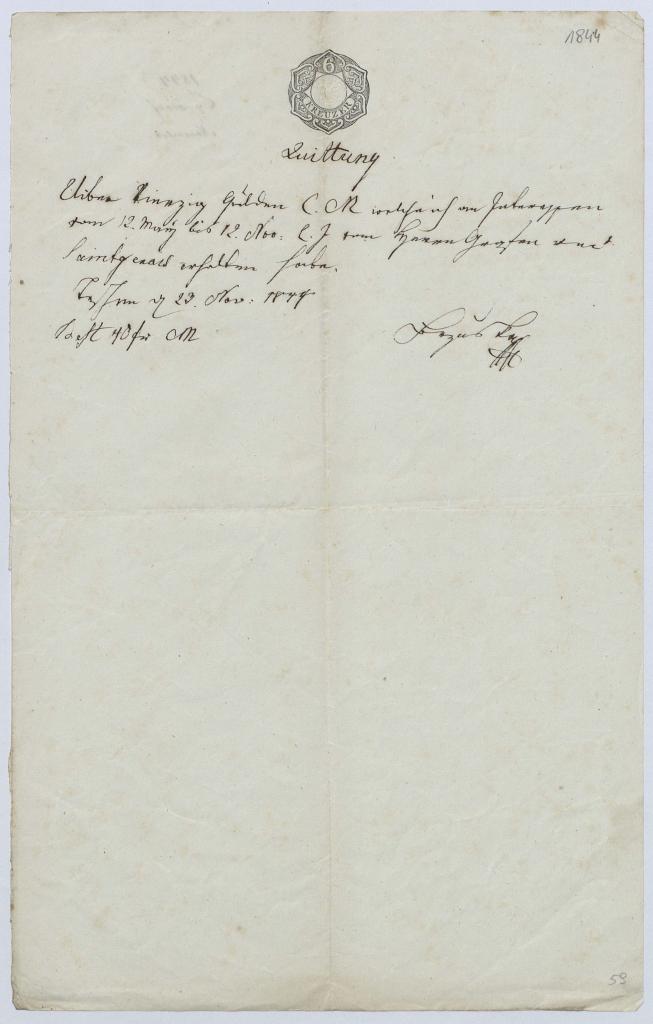 1844
6
KREUZER
Quittung
Uiber Vierzig Gulden C. M welche ich an Interessen
vom 12. May bis 12. Nov: l. J vom Herrn Grafen
Saintgenois erhalten habe.
Teschen d 23. Nov: 1844
40 fr CM
59